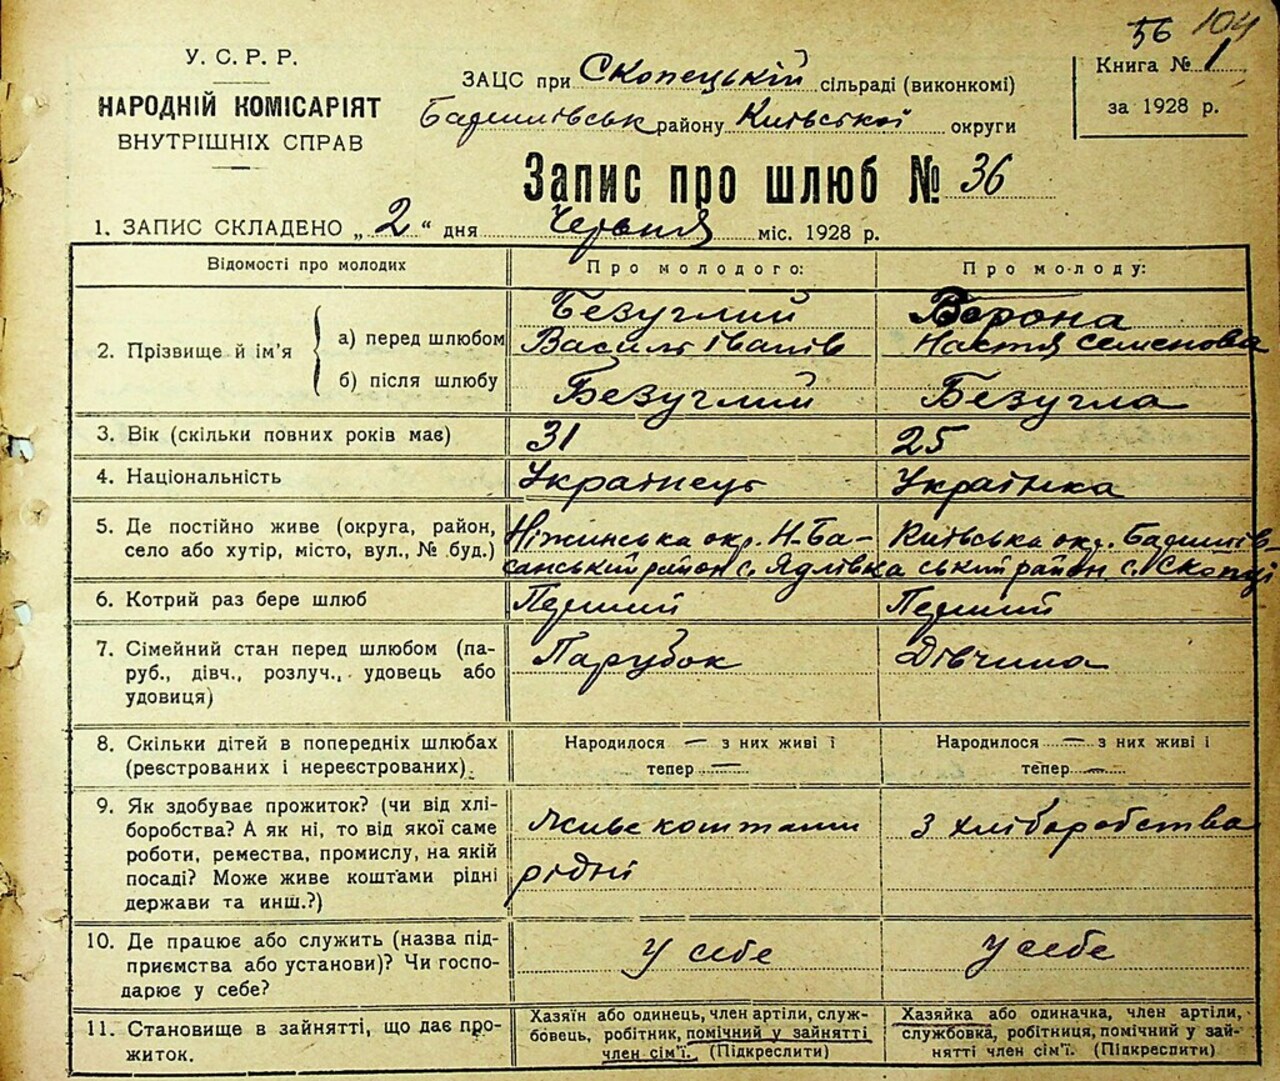 56 104
У. С. Р. Р.
НАРОДНІЙ КОМІСАРІЯТ
ВНУТРІШНІХ СПРАВ
ЗАЦС при Скопецькій сільраді (виконкомі)
Баришівськ району Київської округи
Книга № 1
за 1928 р.
Запис про шлюб № 36
1. ЗАПИС СКЛАДЕНО „ 2 “ дня Червня міс. 1928 р.
Відомості про молодих
Про молодого:
Про молоду:
2. Прізвище й ім'я
а) перед шлюбом
Безуглий
Василь Іванів
Ворона
Настя Семенова
б) після шлюбу
Безуглий
Безугла
3. Вік (скільки повних років має)
31
25
4. Національність
Українець
Українка
5. Де постійно живе (округа, район,
село або хутір, місто, вул., № буд.)
Ніжинська окр. Н-Ба-
санський район с. Ядлівка
Київська окр. Баришів-
ський район с. Скопці
6. Котрий раз бере шлюб
Перший
Перший
7. Сімейний стан перед шлюбом (па-
руб., дівч., розлуч., удовець або
удовиця)
Парубок
Дівчина
8. Скільки дітей в попередніх шлюбах
(реєстрованих і нереєстрованих).
Народилося — з них живі і
тепер —
Народилося — з них живі і
тепер —
9. Як здобуває прожиток? (чи від хлі-
боробства? А як ні, то від якої саме
роботи, ремества, промислу, на якій
посаді? Може живе коштами рідні
держави та инш.?)
Живе коштами
рідні
З хліборобства
10. Де працює або служить (назва під-
приємства або установи)? Чи госпо-
дарює у себе?
У себе
У себе
11. Становище в зайнятті, що дає про-
житок.
Хазяїн або одинець, член артіли, служ-
бовець, робітник, помічний у зайнятті
член сім'ї. (Підкреслити)
Хазяйка або одиначка, член артіли,
службовка, робітниця, помічний у зай-
нятті член сім'ї. (Підкреслити)